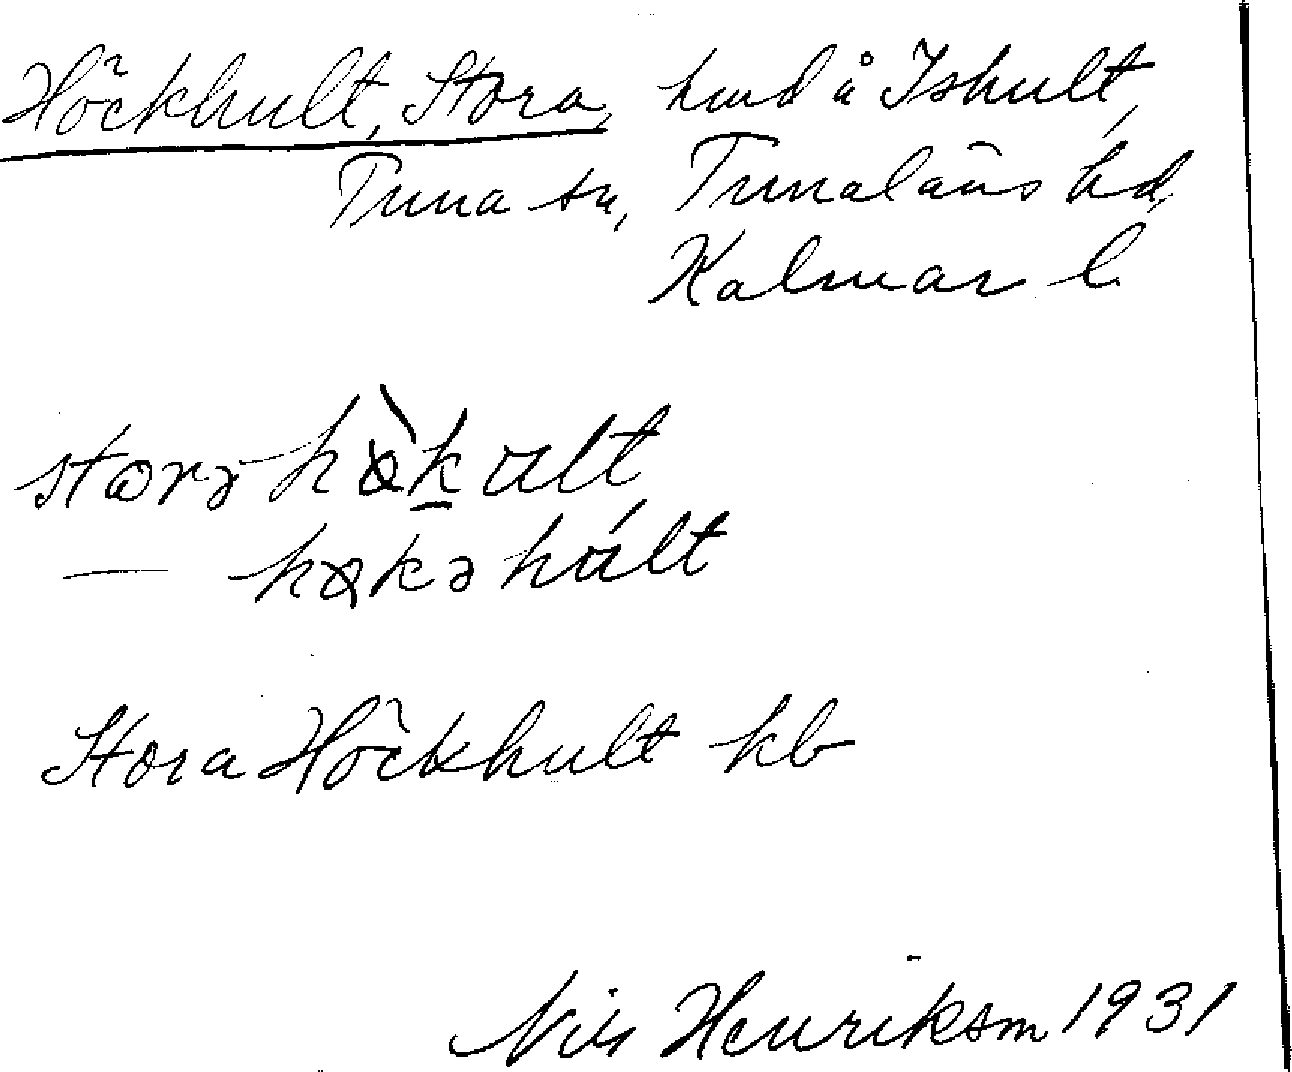 Höckhult, Stora, hmd å Ishult,
Tuna sn, Tunaläns hd,
Kalmar l.
storə hø̀kult
— høkəhúlt
Stora Höckhult kb
Nils Henrikson 1931